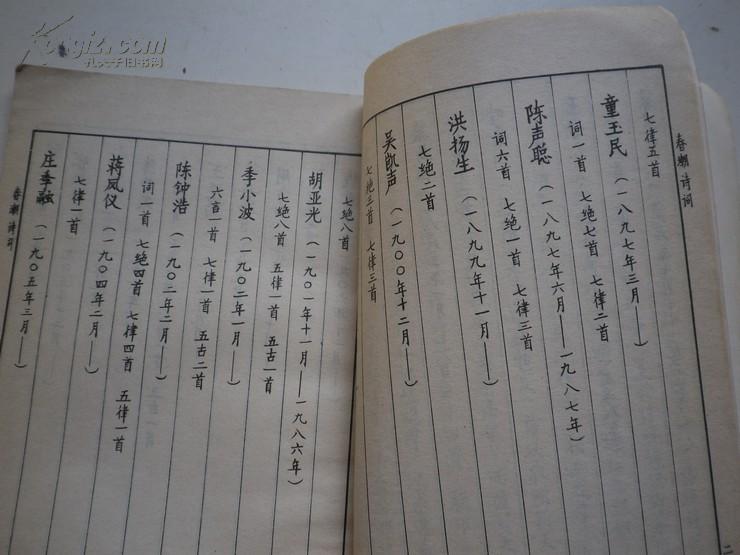 Kongfz.com
孔夫子旧书网
春潮诗词
七律五首
童玉民（一八九七年三月——）
词一首 七绝七首 七律二首
陈声聪（一八九七年六月——一九八七年）
词六首 七绝一首 七律三首
洪扬生（一八九九年十一月——）
七绝二首
吴凯声（一九〇〇年十二月——）
七绝三首 七律三首
七绝八首
胡亚光（一九〇一年十一月——一九八六年）
七绝八首 五律一首 五古一首
季小波（一九〇二年一月——）
六言一首 七律一首 五古二首
陈钟浩（一九〇二年二月——）
词一首 七绝四首 七律四首 五律一首
蒋凤仪（一九〇四年二月——）
七律一首
庄季融（一九〇五年三月——）
春潮诗词